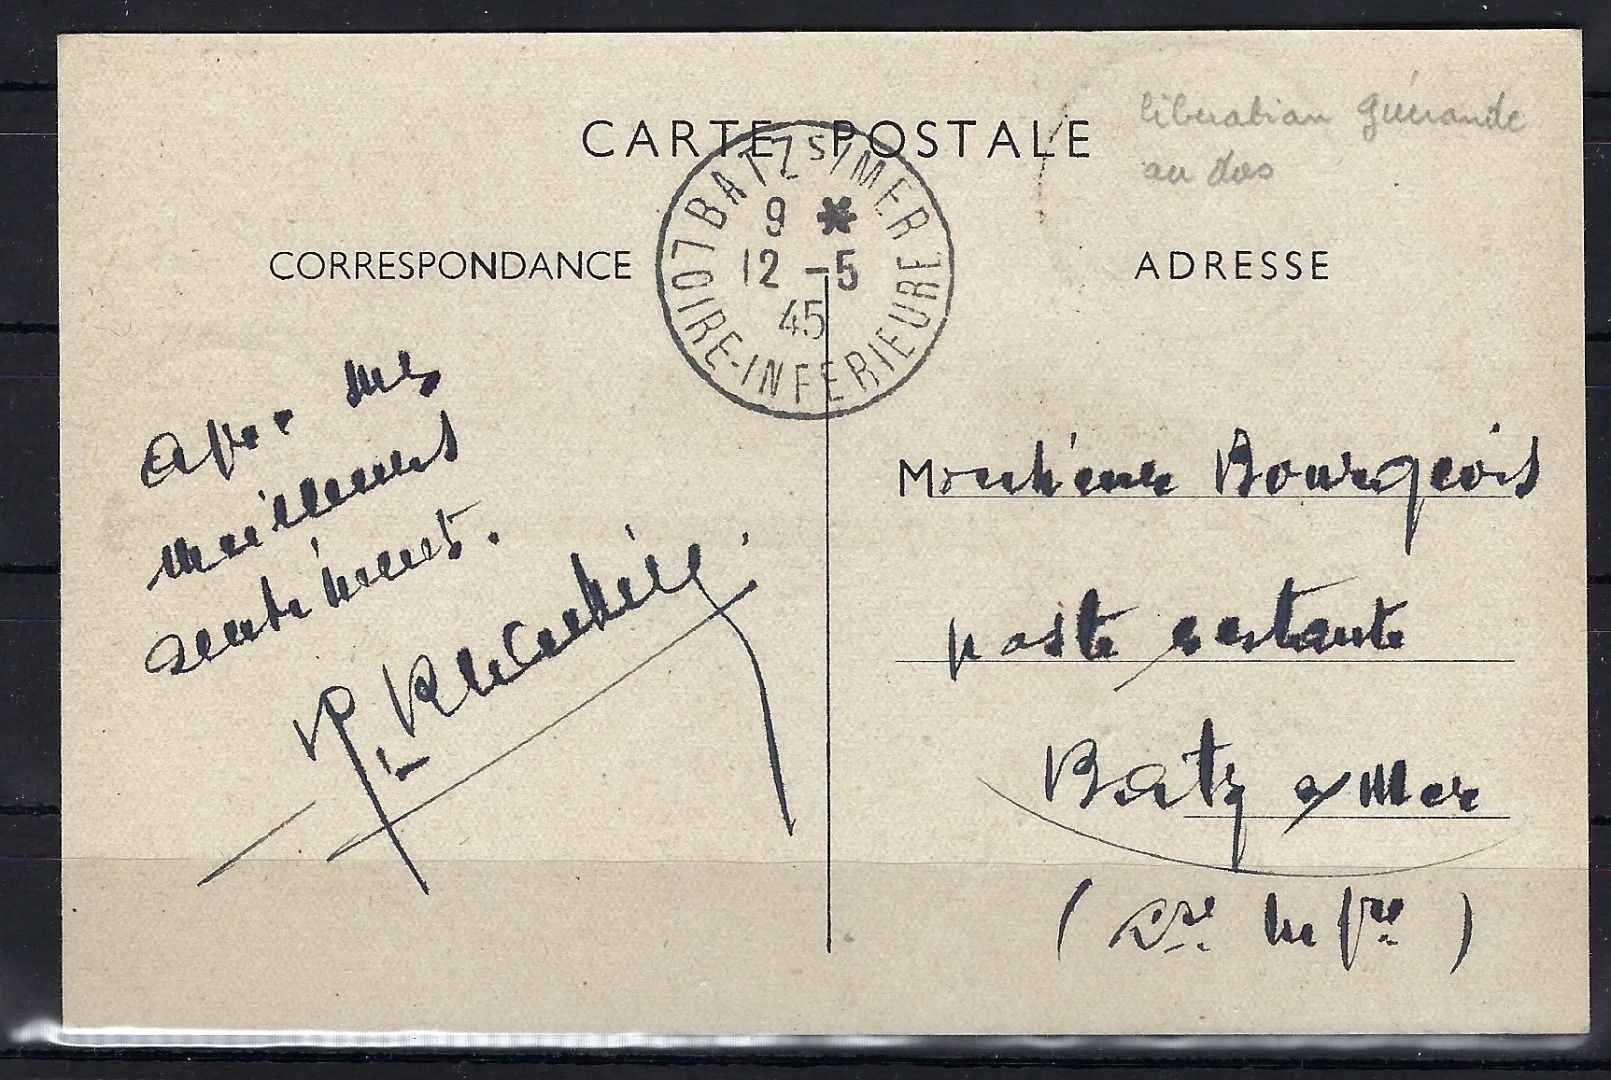 CARTE POSTALE
liberation guérande
au dos
BATZ S/MER
9 *
12 -5
45
LOIRE-INFERIEURE
CORRESPONDANCE
ADRESSE
avec mes
meilleurs
sentiments.
Monsieur Bourgeois
poste restante
Batz s/Mer
(Lre Infre)